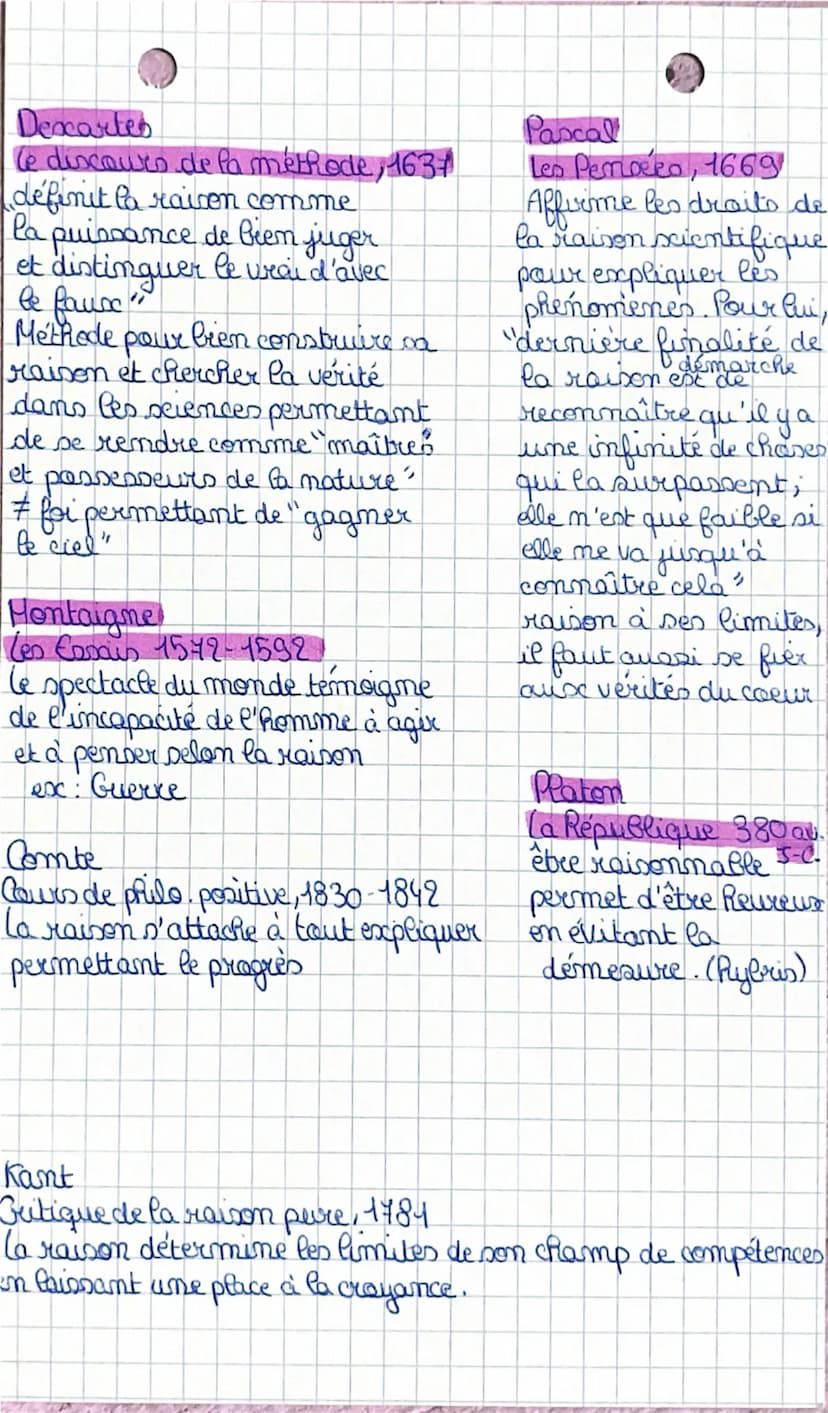 Descartes
Le discours de la méthode, 1637
"définit la raison comme
la puissance de bien juger
et distinguer le vrai d'avec
le faux"
Méthode pour bien construire sa
raison et chercher la vérité
dans les sciences permettant
de se rendre comme "maîtres
et possesseurs de la nature"
≠ foi permettant de "gagner
le ciel"
Montaigne
Les Essais 1572-1592
Le spectacle du monde témoigne
de l'incapacité de l'homme à agir
et à penser selon la raison
ex : Guerre
Comte
Cours de philo. positive, 1830-1842
La raison s'attache à tout expliquer
permettant le progrès
Pascal
Les Pensées, 1669
Affirme les droits de
la raison scientifique
pour expliquer les
phénomènes. Pour lui,
"dernière finalité de
démarche
la raison est de
reconnaître qu'il y a
une infinité de choses
qui la surpassent;
elle n'est que faible si
elle ne va jusqu'à
connaître cela"
raison à ses limites,
il faut aussi se fier
aux vérités du coeur
Platon
La République 380 av.
J-C.
être raisonnable
permet d'être heureux
en évitant la
démesure. (Hybris)
Kant
Critique de la raison pure, 1781
La raison détermine les limites de son champ de compétences
en laissant une place à la croyance.